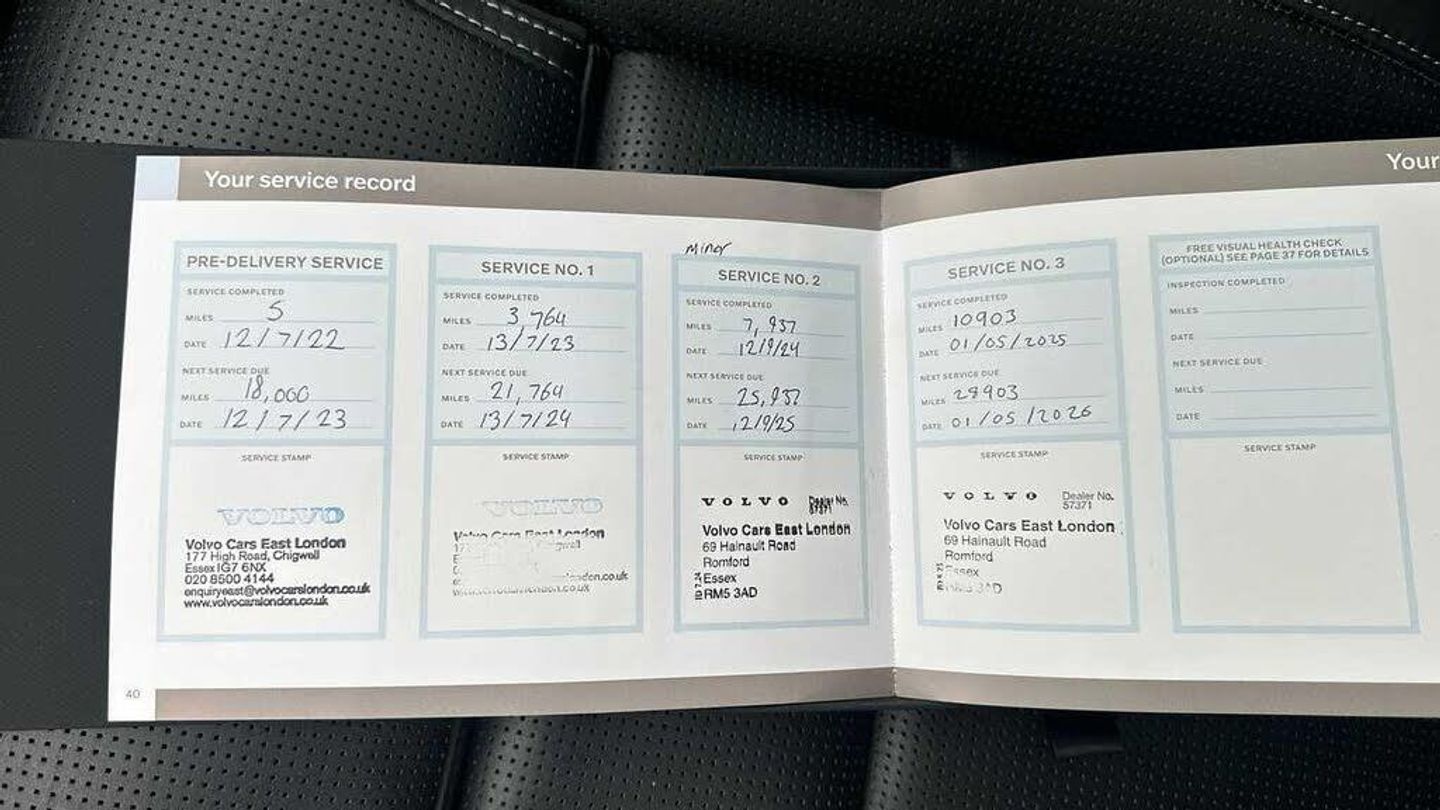 Your service record
Your
PRE-DELIVERY SERVICE
SERVICE COMPLETED
MILES 5
DATE 12/7/22
NEXT SERVICE DUE
MILES 18,000
DATE 12/7/23
SERVICE STAMP
VOLVO
Volvo Cars East London
177 High Road, Chigwell
Essex IG7 6NX
020 8500 4144
enquiryeast@volvocarslondon.co.uk
www.volvocarslondon.co.uk
SERVICE NO. 1
SERVICE COMPLETED
MILES 3,764
DATE 13/7/23
NEXT SERVICE DUE
MILES 21,764
DATE 13/7/24
SERVICE STAMP
VOLVO
Volvo Cars East London
Minor
SERVICE NO. 2
SERVICE COMPLETED
MILES 7,937
DATE 12/9/24
NEXT SERVICE DUE
MILES 25,937
DATE 12/9/25
SERVICE STAMP
VOLVO Dealer No.
57371
Volvo Cars East London
69 Hainault Road
Romford
Essex
RM5 3AD
SERVICE NO. 3
SERVICE COMPLETED
MILES 10903
DATE 01/05/2025
NEXT SERVICE DUE
MILES 28903
DATE 01/05/2026
SERVICE STAMP
VOLVO Dealer No.
57371
Volvo Cars East London
69 Hainault Road
Romford
Essex
FREE VISUAL HEALTH CHECK
(OPTIONAL) SEE PAGE 37 FOR DETAILS
INSPECTION COMPLETED
MILES
DATE
NEXT SERVICE DUE
MILES
DATE
SERVICE STAMP
40